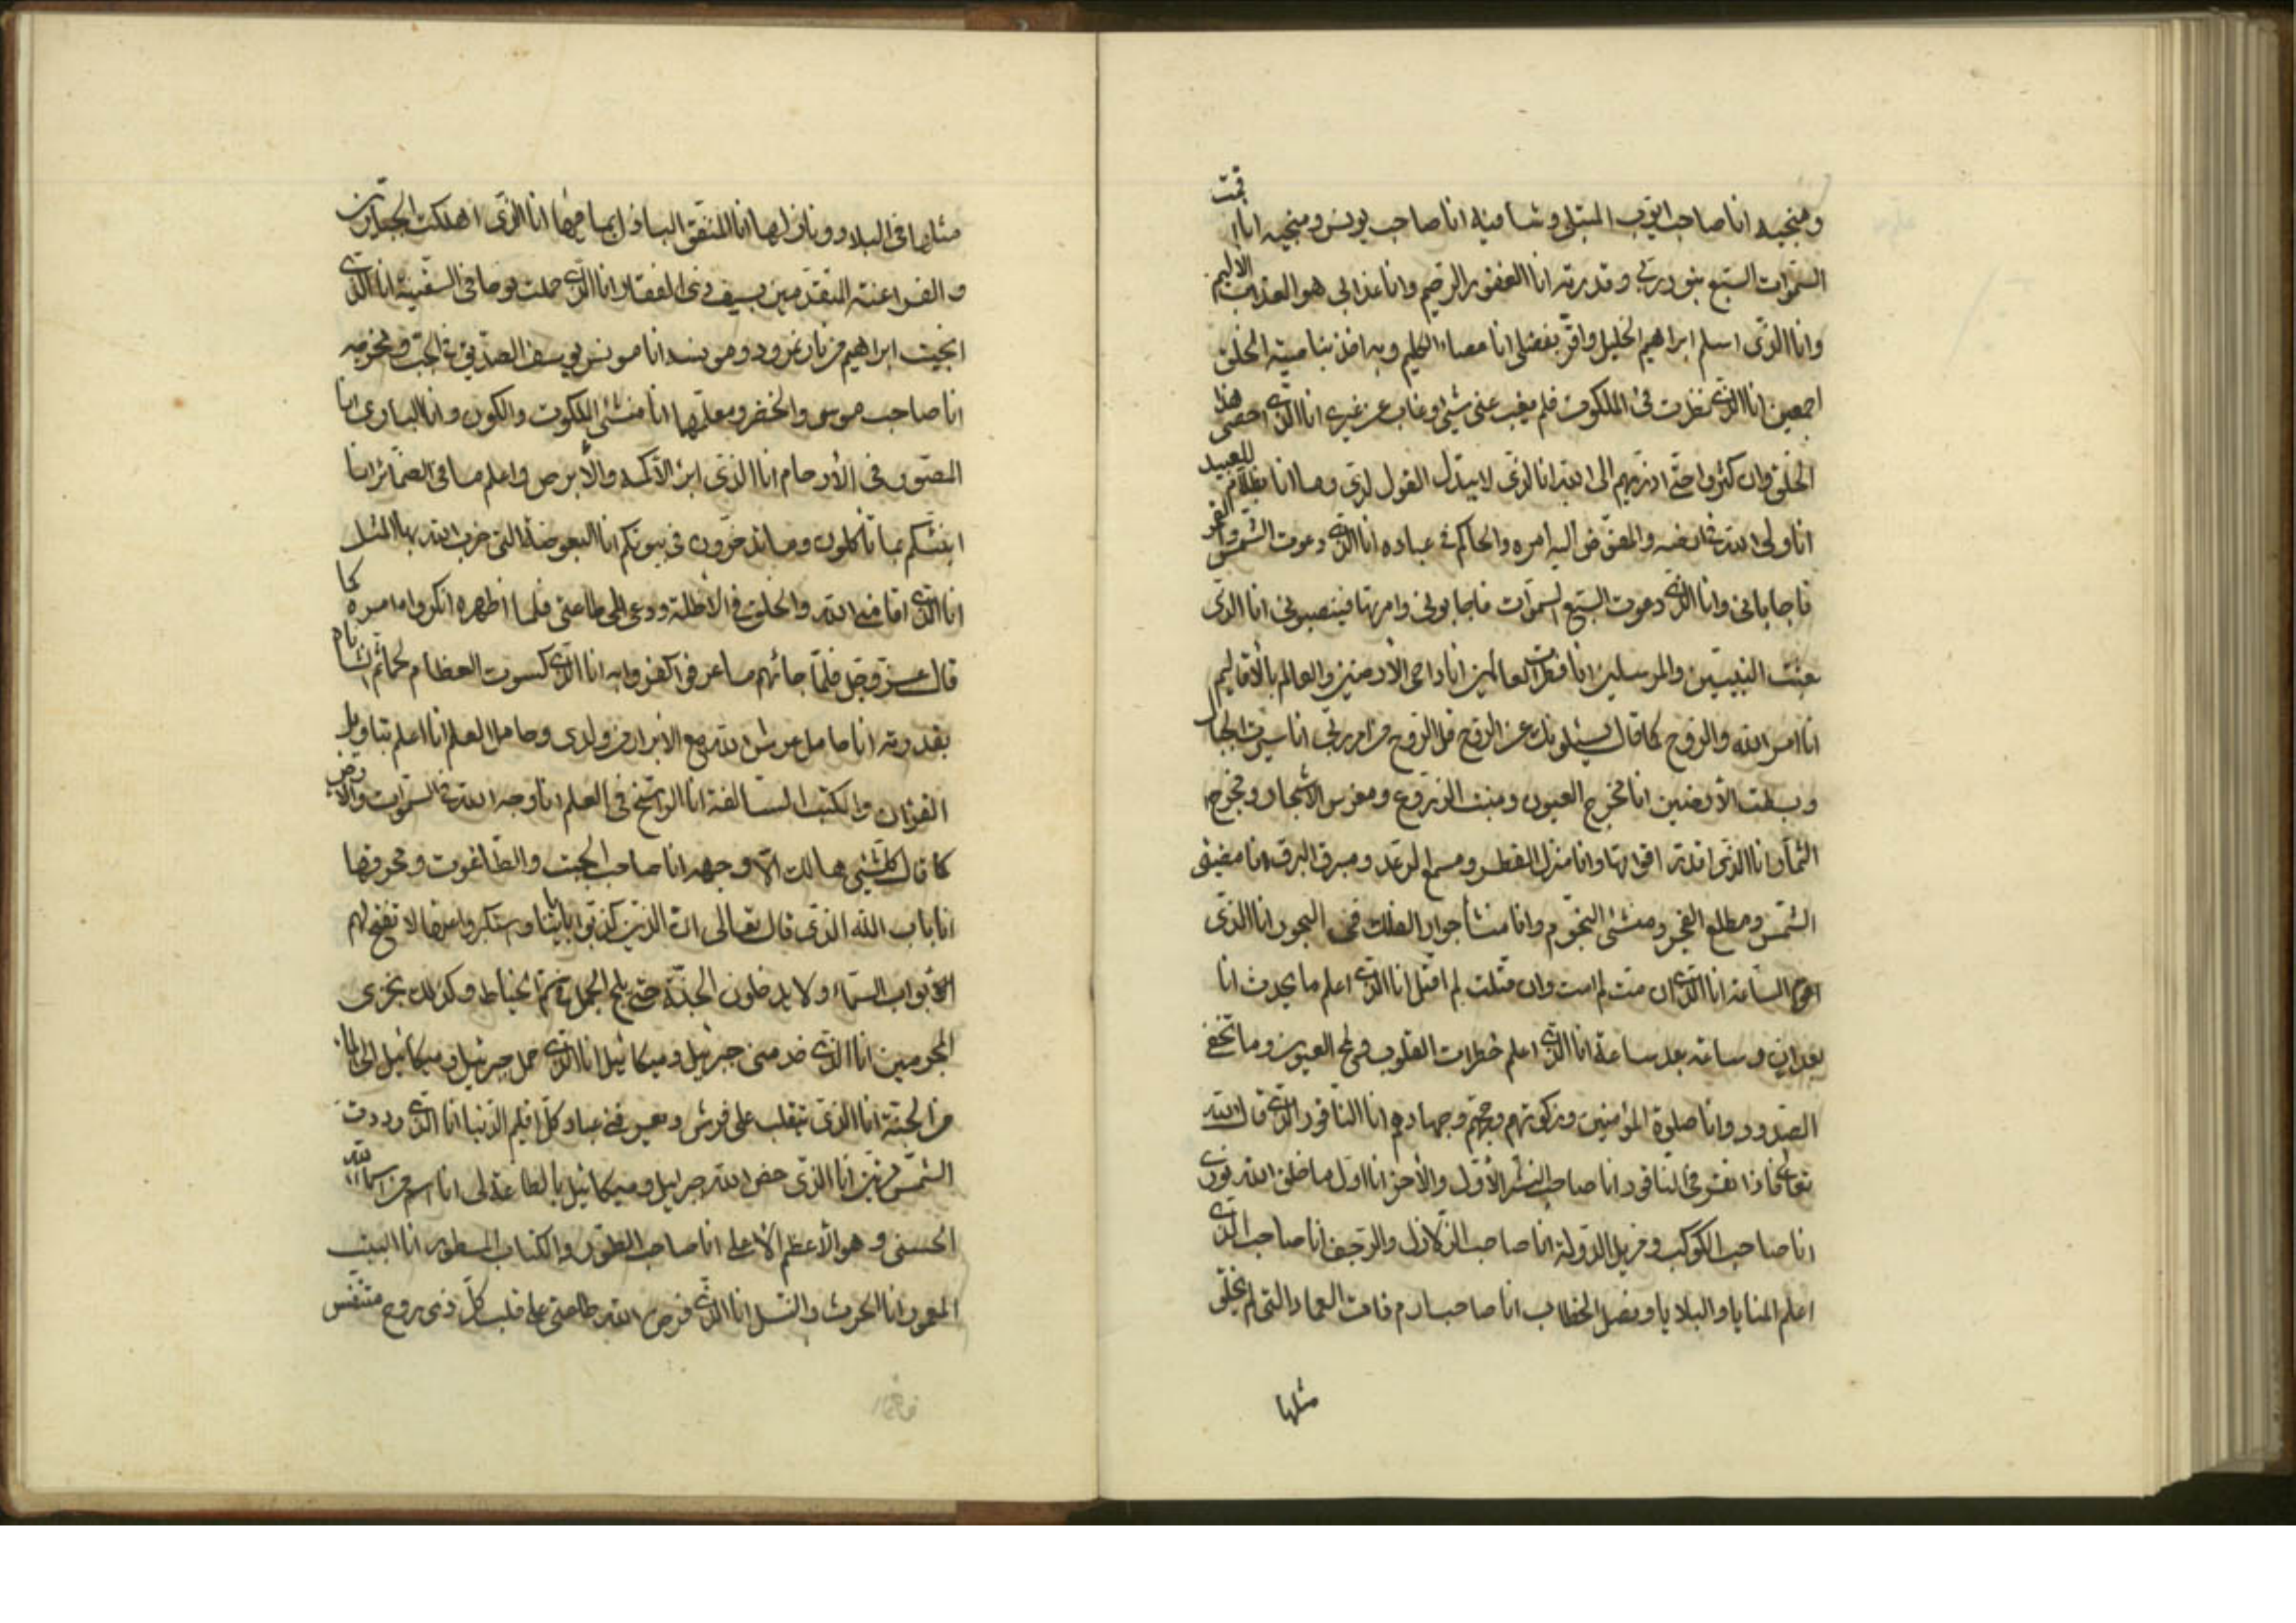 ومنجيه انا صاحب ايوب المبتلى وشافيه انا صاحب يونس ومنجيه انا اقمت
السموات السبع بنور ربي وقدرته انا الغفور الرحيم وانا عذابي هو العذاب الاليم
وانا الذي اسلم ابراهيم الخليل واقر بفضلي انا عصاء الكليم وبه اخذ بناصية الخلق
اجمعين انا الذي نظرت في الملكوت فلم يغب عني شيئ وغاب عن غيري انا الذي احصى هذا
الخلق وان كثروا حتى اردتهم الى الله انا لذي لا يبدل القول لدي وما انا بظلام للعبيد
انا ولي الله في ارضه والمفوض اليه امره والحاكم في عباده انا الذي دعوت الشمس والقمر
فاجاباني وانا الذي دعوت السبع السموات فاجابوني وامرتها فينصبوني انا الذي
بعثت النبيين والمرسلين انا فطرت العالمين انا داحي الارضين والعالم بالاقاليم
انا امر الله والروح كما قال يسئلونك عن الروح قل الروح من امر ربي انا سيرت الجبال
وبسطت الارضين انا مخرج العيون ومنبت الزروع ومغرس الاشجار ومخرج
الثمار انا الذي اقدر اقواتها وانا منزل القطر ومسمع الرعد ومبرق البرق انا مضيئ
الشمس ومطلع الفجر ومنشئ النجوم وانا منشأ جوار الفلك في البحور انا الذي
اقوم الساعة انا الذي ان مت لم امت وان قتلت لم اقتل انا الذي اعلم ما يحدث انا
بعد ان وساعة بعد ساعة انا الذي اعلم خطرات القلوب ولمح العيون وما تخفي
الصدور وانا صلوة المؤمنين وزكوتهم وحجهم وجهادهم انا الناقور الذي قال الله
تعالى فاذا نقر في الناقور انا صاحب النشر الاول والاخر انا اول ما خلق الله نوري
انا صاحب الكوكب ومزيل الدولة انا صاحب الزلازل والرجف انا صاحب الذي
اعلم المنايا والبلايا وفصل الخطاب انا صاحب ارم ذات العماد التي لم يخلق
مثلها
مثلها في البلاد ونازلها انا المنفق الباذل بما فيها انا الذي اهلكت الجبارين
والفراعنة المتقدمين بسيف ذي الفقار انا الذي حملت نوحا في السفينة انا الذي
انجيت ابراهيم من نار نمرود ومونسه انا مونس يوسف الصديق في الجب ومخرجه
انا صاحب موسى والخضر ومعلمهما انا منشئ الملكوت والكون وانا الباري انا
المصور في الارحام انا الذي ابرء الاكمه والابرص واعلم ما في الضمائر انا
انبئكم بما تاكلون وما تدخرون في بيوتكم انا البعوضة التي ضرب الله بها المثل
انا الذي اقامني الله والخلق في الاظلة ودعى الى طاعتي فلما اظهره انكروا امره كما
قال عز وجل فلما جائهم ما عرفوا كفروا به انا الذي كسوت العظام لحما ثم انشاناه
بقدرته انا حامل عرش الله مع الابرار من ولدي وحامل العلم انا اعلم بتاويل
القران والكتب السالفة انا الراسخ في العلم انا وجه الله في السموات والارض
كما قال كل شيئ هالك الا وجهه انا صاحب الجبت والطاغوت ومحرقهما
انا باب الله الذي قال تعالى ان الذين كذبوا باياتنا واستكبروا عنها لا تفتح لهم
ابواب السماء ولا يدخلون الجنة حتى يلج الجمل في سم الخياط وكذلك نجزي
المجرمين انا الذي خدمني جبرئيل وميكائيل انا الذي حمل جبرئيل وميكائيل الي الماء
من الجنة انا الذي يتقلب على فرش ومعروف في عباد كل اقليم الدنيا انا الذي رددت
الشمس مرتين انا الذي خص الله جبرئيل وميكائيل بالطاعة لي انا اسم من اسماء الله
الحسنى وهو الاعظم الاعلى انا صاحب الطور والكتاب المسطور انا البيت
المعمور انا الحرث والنسل انا الذي فرض الله طاعتي على قلب كل ذي روح متنفس